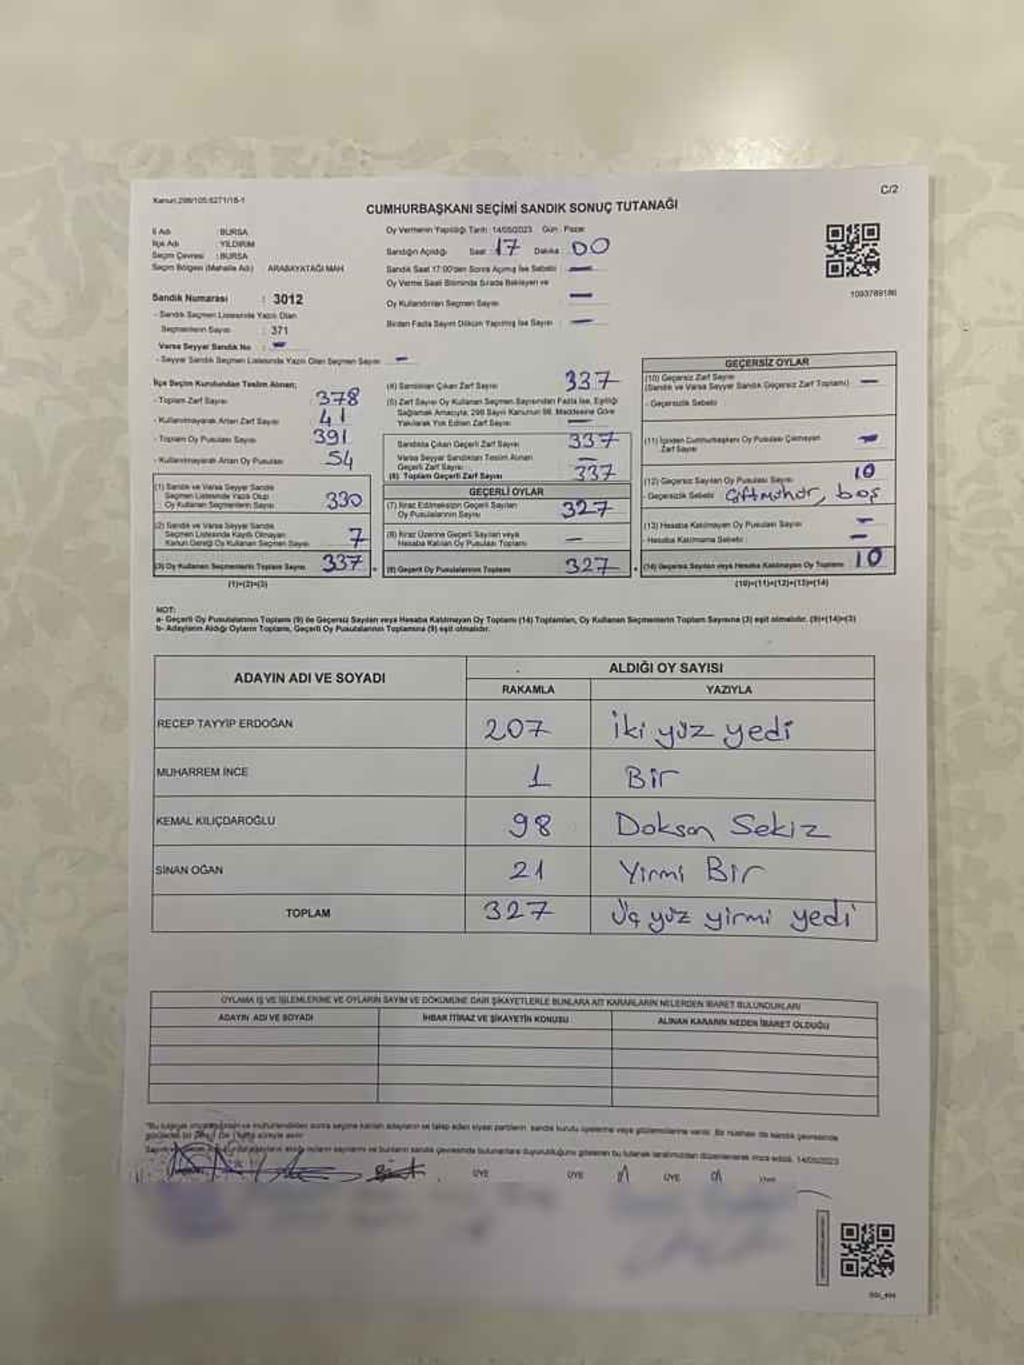 Kanun:298/105:6271/18-1
C/2
CUMHURBAŞKANI SEÇİMİ SANDIK SONUÇ TUTANAĞI
İl Adı : BURSA
İlçe Adı : YILDIRIM
Seçim Çevresi : BURSA
Seçim Bölgesi (Mahalle Adı) ARABAYATAĞI MAH
Sandık Numarası : 3012
- Sandık Seçmen Listesinde Yazılı Olan
Seçmenlerin Sayısı : 371
Varsa Seyyar Sandık No : -
- Seyyar Sandık Seçmen Listesinde Yazılı Olan Seçmen Sayısı -
Oy Vermenin Yapıldığı Tarih: 14/05/2023 Gün: Pazar
Sandığın Açıldığı Saat 17 Dakika: 00
Sandık Saat 17:00'den Sonra Açılmış İse Sebebi -
Oy Verme Saati Bitiminde Sırada Bekleyen ve
Oy Kullandırılan Seçmen Sayısı -
Birden Fazla Sayım Döküm Yapılmış İse Sayısı -
1093789186
İlçe Seçim Kurulundan Teslim Alınan;
- Toplam Zarf Sayısı 378
- Kullanılmayarak Artan Zarf Sayısı 41
- Toplam Oy Pusulası Sayısı 391
- Kullanılmayarak Artan Oy Pusulası 54
(1) Sandık ve Varsa Seyyar Sandık
Seçmen Listesinde Yazılı Olup
Oy Kullanan Seçmenlerin Sayısı 330
(2) Sandık ve Varsa Seyyar Sandık
Seçmen Listesinde Kayıtlı Olmayan
Kanun Gereği Oy Kullanan Seçmen Sayısı 7
(3) Oy Kullanan Seçmenlerin Toplam Sayısı 337
(1)+(2)=(3)
(4) Sandıktan Çıkan Zarf Sayısı 337
(5) Zarf Sayısı Oy Kullanan Seçmen Sayısından Fazla İse, Eşitliği
Sağlamak Amacıyla, 298 Sayılı Kanunun 98. Maddesine Göre
Yakılarak Yok Edilen Zarf Sayısı -
Sandıkta Çıkan Geçerli Zarf Sayısı 337
Varsa Seyyar Sandıktan Teslim Alınan
Geçerli Zarf Sayısı -
(6) Toplam Geçerli Zarf Sayısı 337
GEÇERLİ OYLAR
(7) İtiraz Edilmeksizin Geçerli Sayılan
Oy Pusulalarının Sayısı 327
(8) İtiraz Üzerine Geçerli Sayılan veya
Hesaba Katılan Oy Pusulası Toplamı -
(9) Geçerli Oy Pusulalarının Toplamı 327
GEÇERSİZ OYLAR
(10) Geçersiz Zarf Sayısı
(Sandık ve Varsa Seyyar Sandık Geçersiz Zarf Toplamı) -
- Geçersizlik Sebebi :
(11) İçinden Cumhurbaşkanı Oy Pusulası Çıkmayan
Zarf Sayısı -
(12) Geçersiz Sayılan Oy Pusulası Sayısı 10
- Geçersizlik Sebebi Çift mühür, boş
(13) Hesaba Katılmayan Oy Pusulası Sayısı -
- Hesaba Katılmama Sebebi : -
(14) Geçersiz Sayılan veya Hesaba Katılmayan Oy Toplamı 10
(10)+(11)+(12)+(13)=(14)
NOT:
a- Geçerli Oy Pusulalarının Toplamı (9) ile Geçersiz Sayılan veya Hesaba Katılmayan Oy Toplamı (14) Toplamları, Oy Kullanan Seçmenlerin Toplam Sayısına (3) eşit olmalıdır. (9)+(14)=(3)
b- Adayların Aldığı Oyların Toplamı, Geçerli Oy Pusulalarının Toplamına (9) eşit olmalıdır.
ADAYIN ADI VE SOYADI
ALDIĞI OY SAYISI
RAKAMLA YAZIYLA
RECEP TAYYİP ERDOĞAN 207 İki yüz yedi
MUHARREM İNCE 1 Bir
KEMAL KILIÇDAROĞLU 98 Doksan Sekiz
SİNAN OĞAN 21 Yirmi Bir
TOPLAM 327 Üç yüz yirmi yedi
OYLAMA İŞ VE İŞLEMLERİNE VE OYLARIN SAYIM VE DÖKÜMÜNE DAİR ŞİKAYETLERLE BUNLARA AİT KARARLARIN NELERDEN İBARET BULUNDUKLARI
ADAYIN ADI VE SOYADI İHBAR İTİRAZ VE ŞİKAYETİN KONUSU ALINAN KARARIN NEDEN İBARET OLDUĞU
ÜYE ÜYE ÜYE